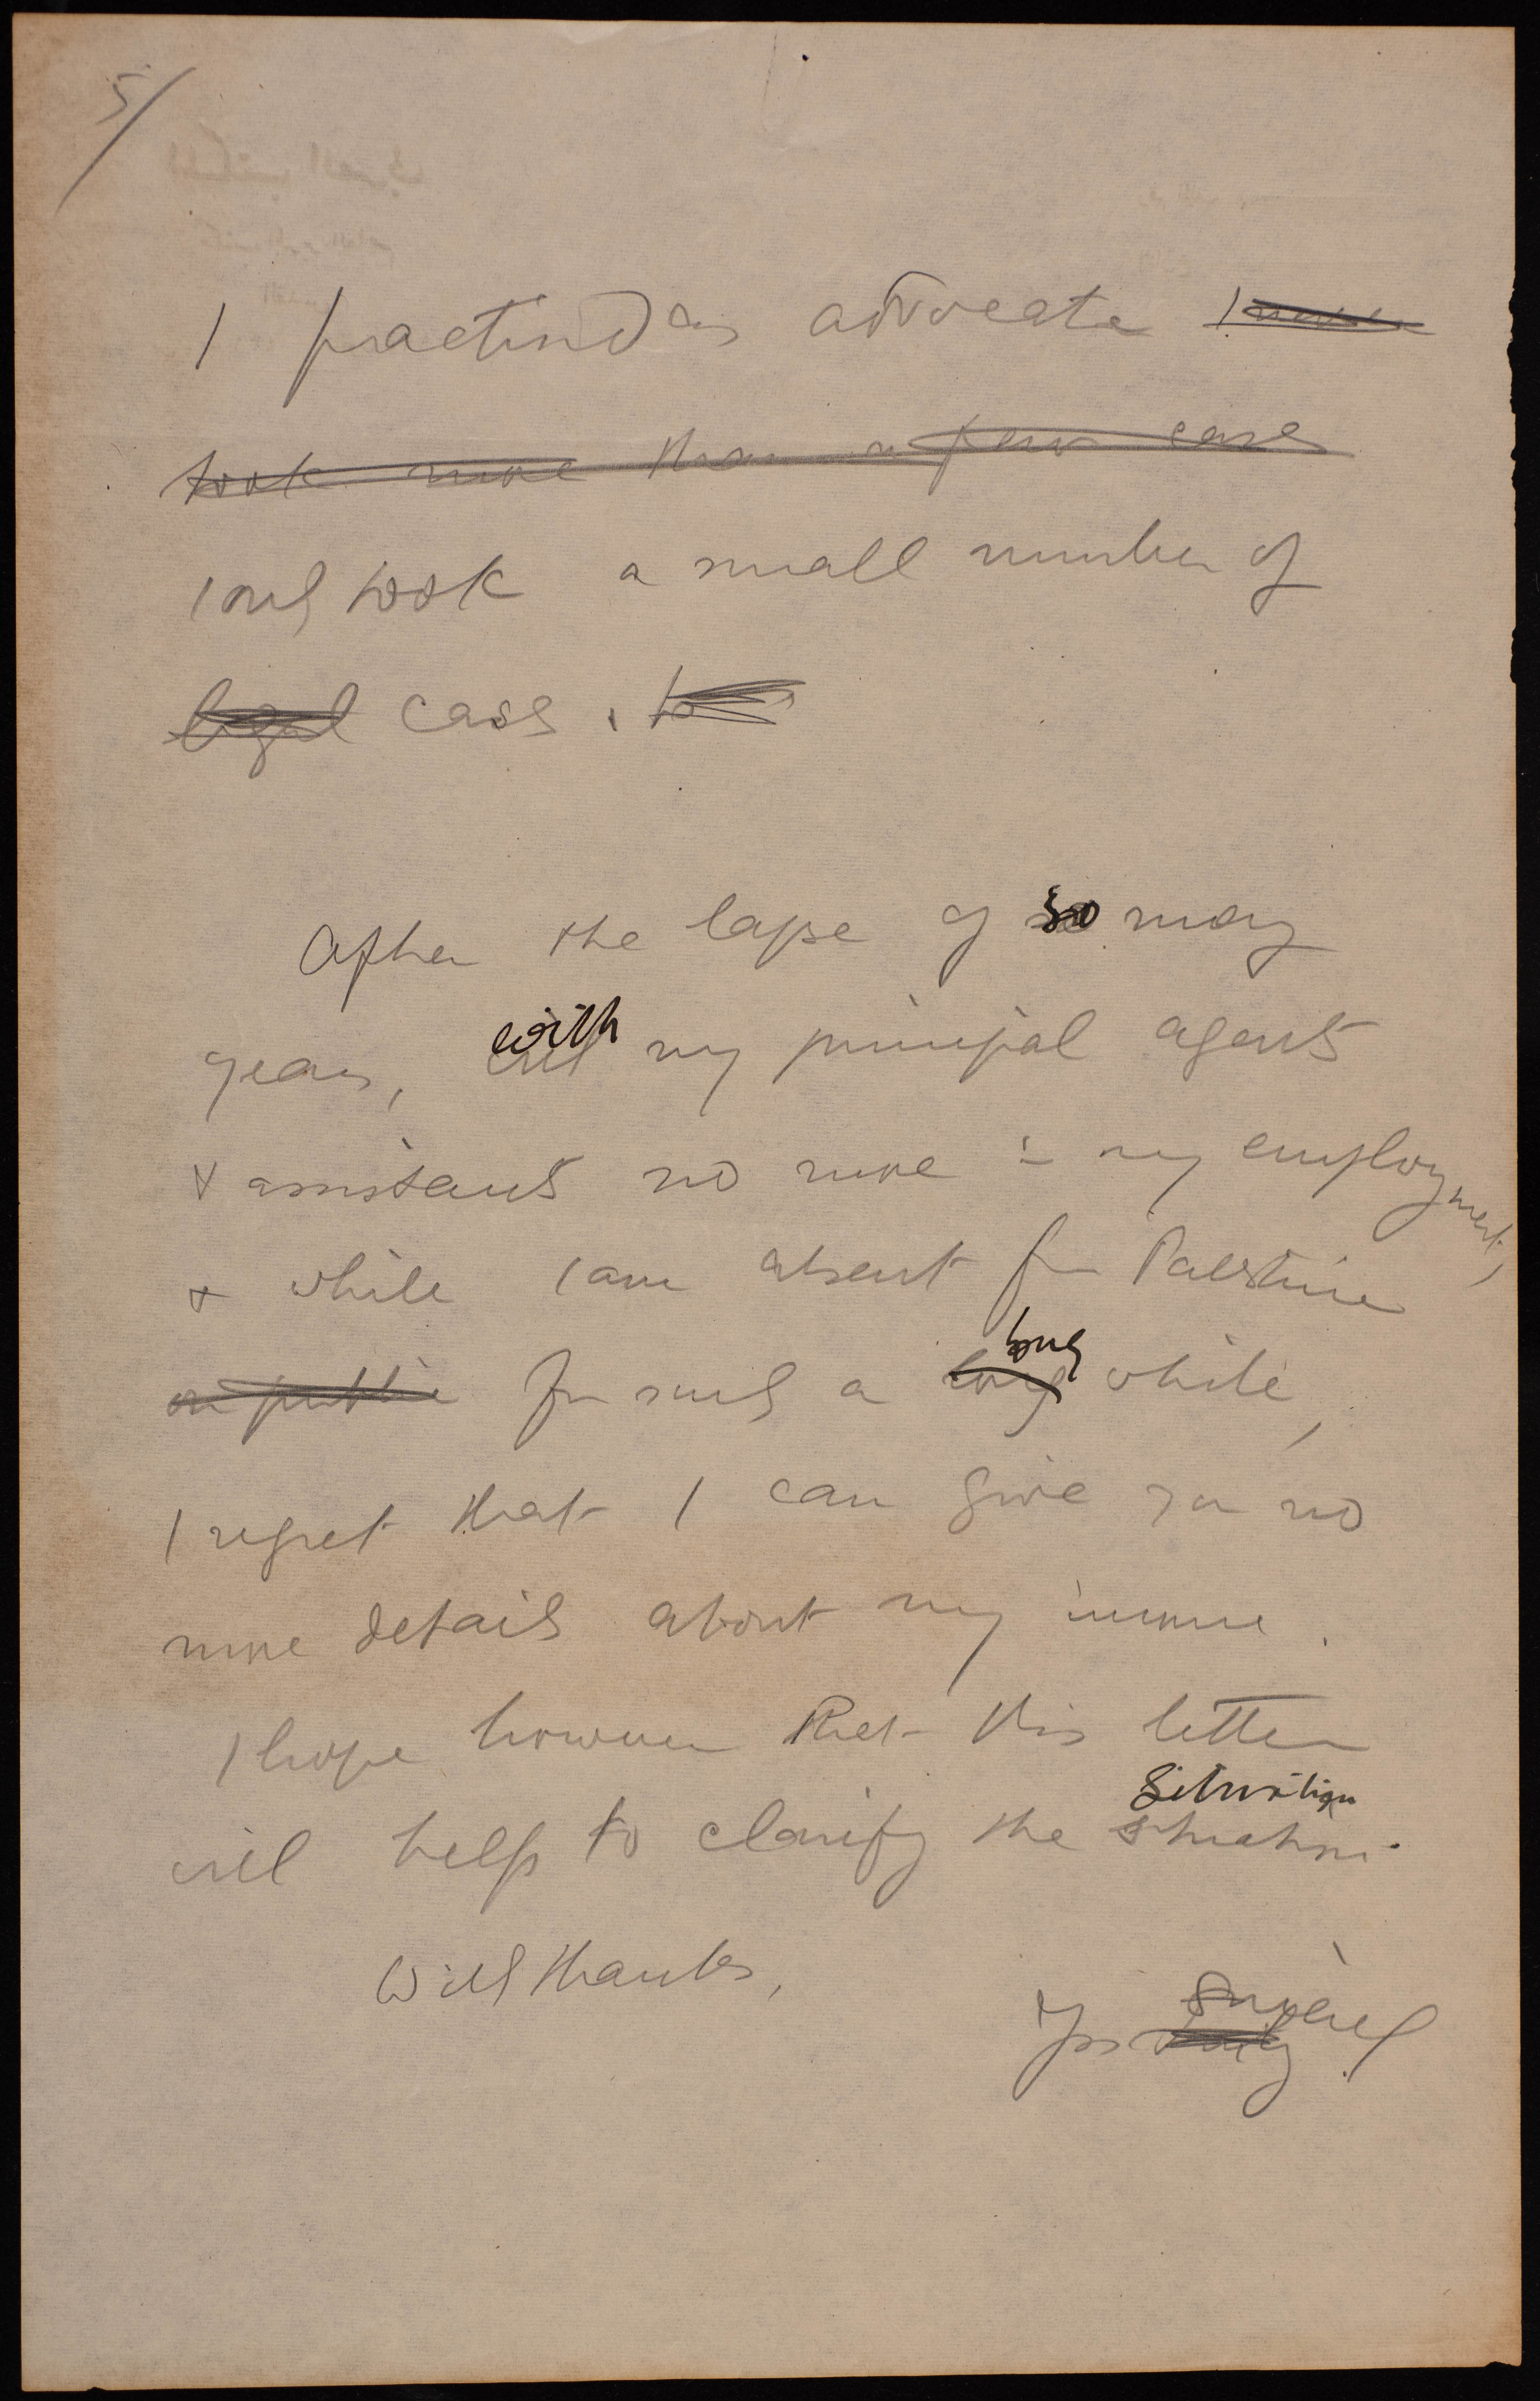 5/
I practised as advocate I never
took more than a few cases
I only took a small number of
legal cases. to
After the lapse of so many
years, with my principal agents
& assistants no more in my employment,
& while I am absent from Palestine
for such a long long while,
I regret that I can give you no
more details about my income.
I hope however that this letter
situation
will help to clarify the situation.
With thanks,
sincerely
Yrs truly